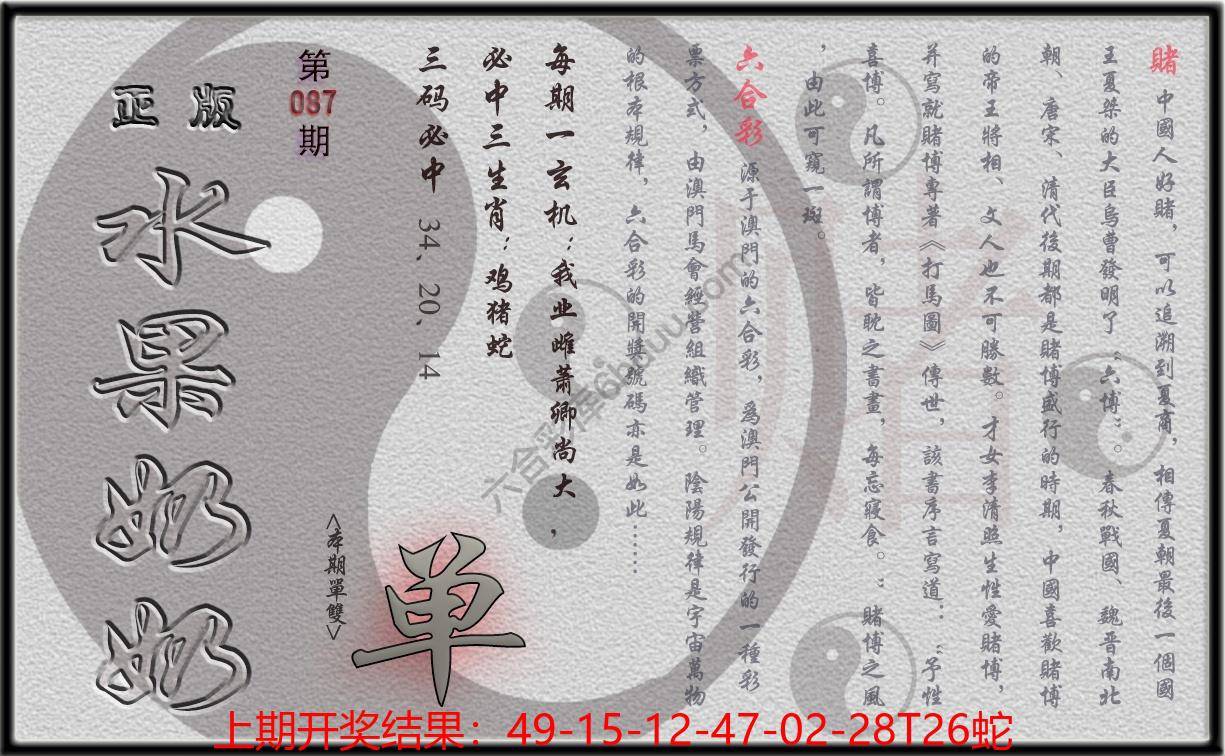 賭 中國人好賭，可以追溯到夏商，相傳夏朝最後一個國
王夏桀的大臣烏曹發明了“六博”。春秋戰國、魏晋南北
朝、唐宋、清代後期都是賭博盛行的時期，中國喜歡賭博
的帝王將相、文人也不可勝數。才女李清照生性愛賭博，
并寫就賭博專著《打馬圖》傳世，該書序言寫道：“予性
喜博。凡所謂博者，皆耽之書畫，每忘寢食。”賭博之風
，由此可窺一斑。
六合彩 源于澳門的六合彩，爲澳門公開發行的一種彩
票方式，由澳門馬會經營組織管理。陰陽規律是宇宙萬物
的根本規律，六合彩的開獎號碼亦是如此……
每期一玄机：我业雌萧卿尚大，
必中三生肖：鸡猪蛇
三码必中 34、20、14
第
087
期
<本期單雙>
单
正版
水果奶奶
賭
六合彩库6huuu.com
上期开奖结果：49-15-12-47-02-28T26蛇